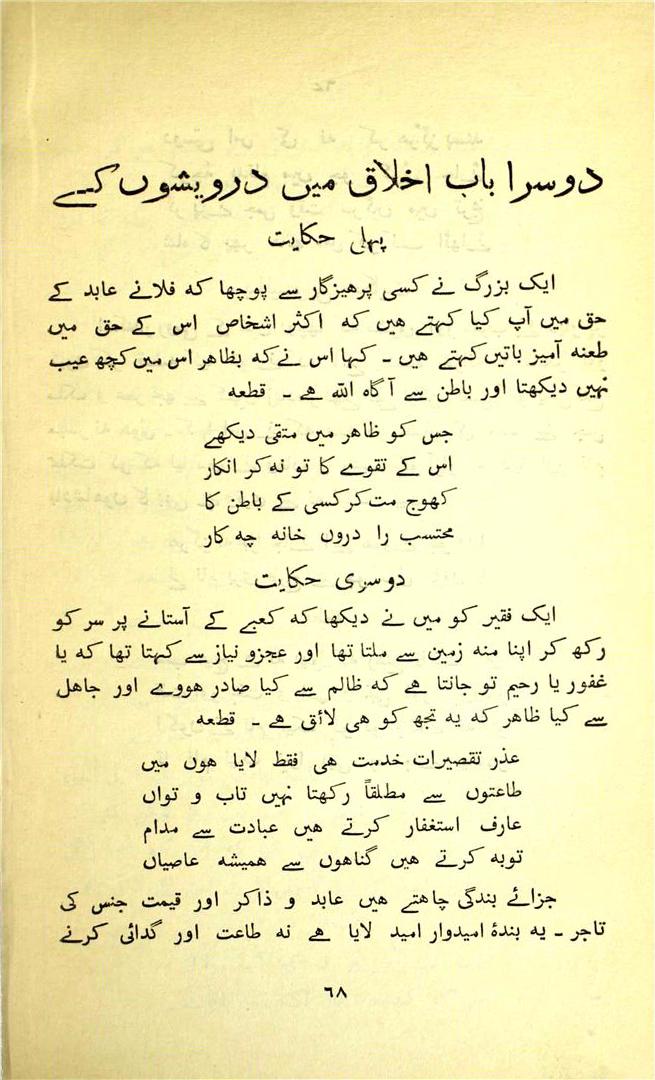 دوسرا باب اخلاق میں درویشوں کے
پہلی حکایت
ایک بزرگ نے کسی پرھیزگار سے پوچھا کہ فلانے عابد کے
حق میں آپ کیا کہتے ھیں کہ اکثر اشخاص اس کے حق میں
طعنہ آمیز باتیں کہتے ھیں ۔ کہا اس نے کہ بظاھر اس میں کچھ عیب
نہیں دیکھتا اور باطن سے آگاہ اللہ ھے ۔ قطعہ
جس کو ظاھر میں متقی دیکھے
اس کے تقوے کا تو نہ کر انکار
کھوج مت کر کسی کے باطن کا
محتسب را دروں خانہ چہ کار
دوسری حکایت
ایک فقیر کو میں نے دیکھا کہ کعبے کے آستانے پر سر کو
رکھ کر اپنا منہ زمین سے ملتا تھا اور عجزو نیاز سے کہتا تھا کہ یا
غفور یا رحیم تو جانتا ھے کہ ظالم سے کیا صادر ھووے اور جاھل
سے کیا ظاھر کہ یہ تجھ کو ھی لائق ھے ۔ قطعہ
عذر تقصیرات خدمت ھی فقط لایا ھوں میں
طاعتوں سے مطلقاً رکھتا نہیں تاب و تواں
عارف استغفار کرتے ھیں عبادت سے مدام
توبہ کرتے ھیں گناھوں سے ھمیشہ عاصیاں
جزائے بندگی چاھتے ھیں عابد و ذاکر اور قیمت جنس کی
تاجر ۔ یہ بندۂ امیدوار امید لایا ھے نہ طاعت اور گدائی کرنے
٦٨